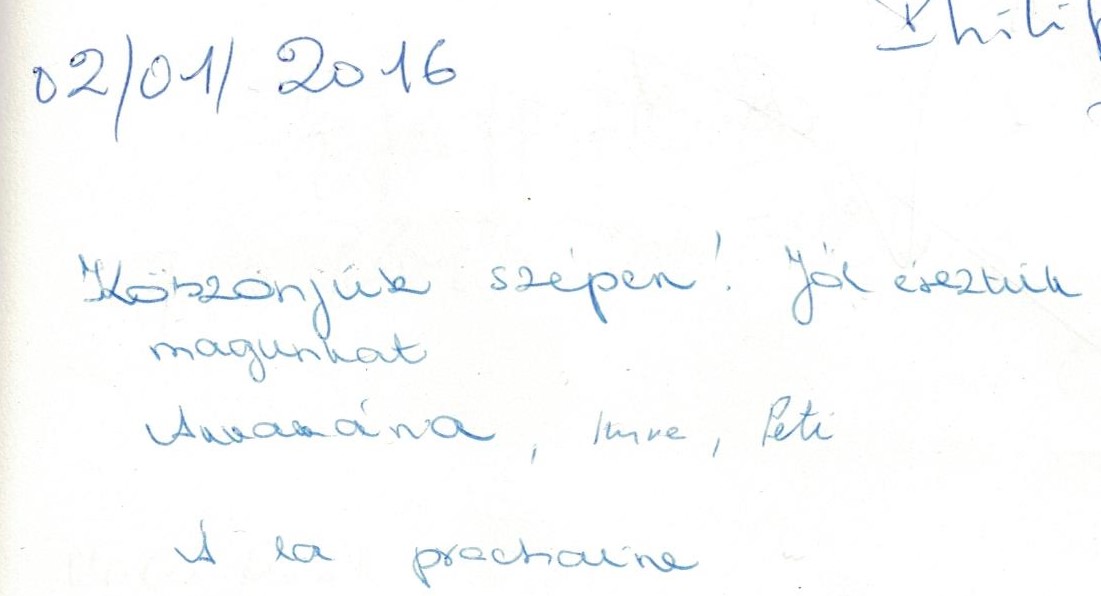 02/01/2016
Köszönjük szépen! Jól éreztük
magunkat
Annamária, Imre, Peti
A la prochaine